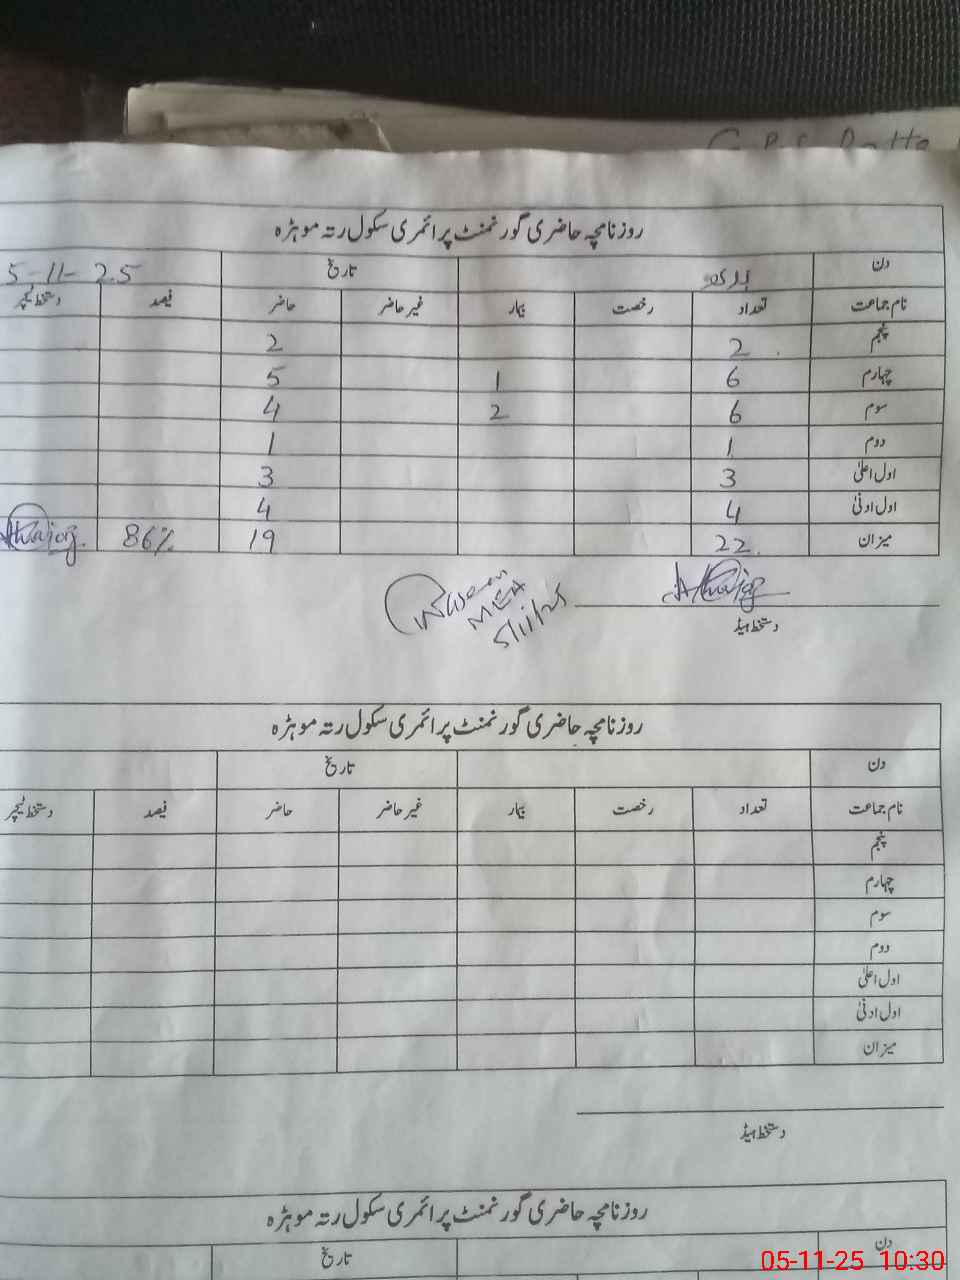 G.P.S Ratta
روزنامچہ حاضری گورنمنٹ پرائمری سکول رتہ موہڑہ
دن بدھ تاریخ 5-11-25
نام جماعت تعداد رخصت بیمار غیر حاضر حاضر فیصد دستخط ٹیچر
پنجم 2 2
چہارم 6 1 5
سوم 6 2 4
دوم 1 1
اول اعلیٰ 3 3
اول ادنیٰ 4 4
میزان 22 19 86%
MEA
5/11/25
دستخط ہیڈ
روزنامچہ حاضری گورنمنٹ پرائمری سکول رتہ موہڑہ
دن تاریخ
نام جماعت تعداد رخصت بیمار غیر حاضر حاضر فیصد دستخط ٹیچر
پنجم
چہارم
سوم
دوم
اول اعلیٰ
اول ادنیٰ
میزان
دستخط ہیڈ
روزنامچہ حاضری گورنمنٹ پرائمری سکول رتہ موہڑہ
دن تاریخ
05-11-25 10:30